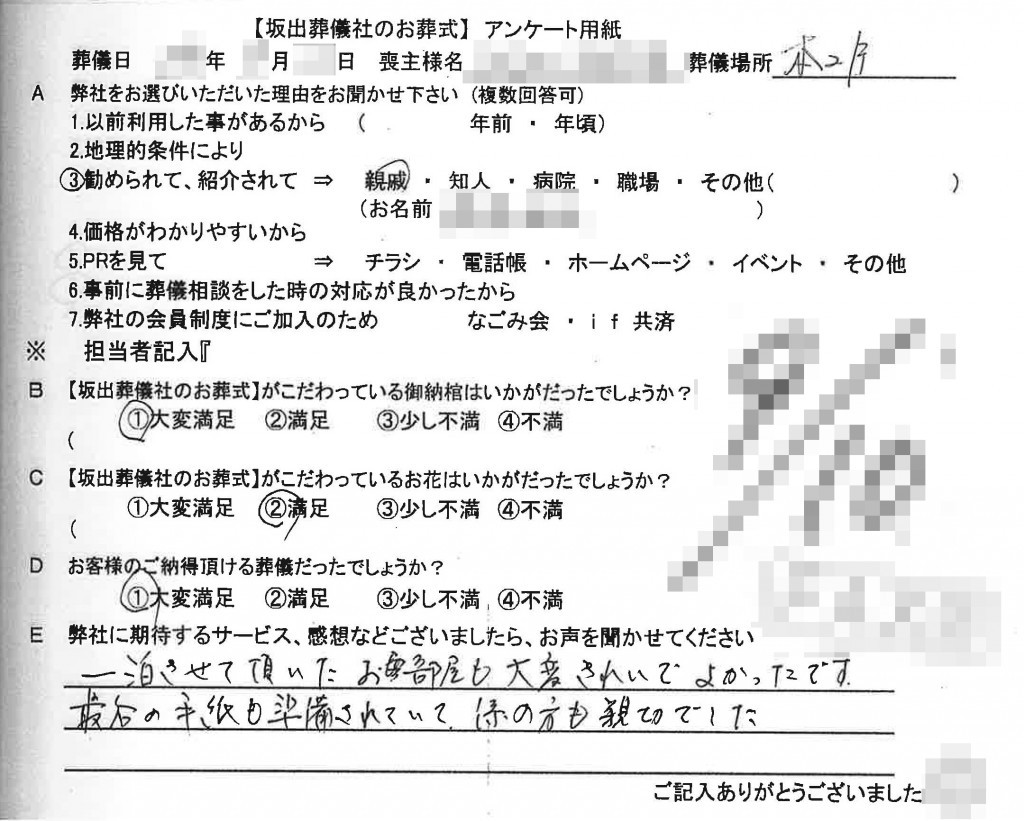 【坂出葬儀社のお葬式】 アンケート用紙
葬儀日 年 月 日 喪主様名 葬儀場所 本2F
A 弊社をお選びいただいた理由をお聞かせ下さい (複数回答可)
1.以前利用した事があるから ( 年前 ・ 年頃)
2.地理的条件により
③勧められて、紹介されて ⇒ 親戚 ・ 知人 ・ 病院 ・ 職場 ・ その他( )
(お名前 )
4.価格がわかりやすいから
5.PRを見て ⇒ チラシ ・ 電話帳 ・ ホームページ ・ イベント ・ その他
6.事前に葬儀相談をした時の対応が良かったから
7.弊社の会員制度にご加入のため なごみ会 ・ ｉｆ 共済
※ 担当者記入『
B 【坂出葬儀社のお葬式】がこだわっている御納棺はいかがだったでしょうか？
①大変満足 ②満足 ③少し不満 ④不満
(
C 【坂出葬儀社のお葬式】がこだわっているお花はいかがだったでしょうか？
①大変満足 ②満足 ③少し不満 ④不満
(
D お客様のご納得頂ける葬儀だったでしょうか？
①大変満足 ②満足 ③少し不満 ④不満
E 弊社に期待するサービス、感想などございましたら、お声を聞かせてください
一泊させて頂いたお部屋も大変きれいでよかったです
最后の手紙も準備されていて、係の方も親切でした
ご記入ありがとうございました